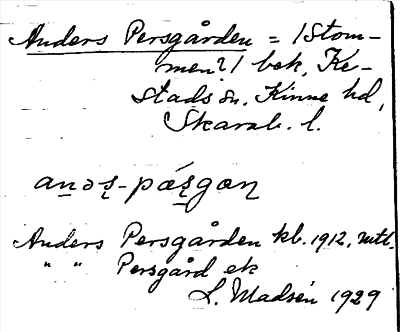 Anders Persgården = /Stom-
men?/ bek, Ke-
stads sn. Kinne hd,
Skarab. l.
anəʂ-pǽʂgaɳ
Anders Persgården kb. 1912, mtl.
" " Persgård ek
L. Madsén 1929